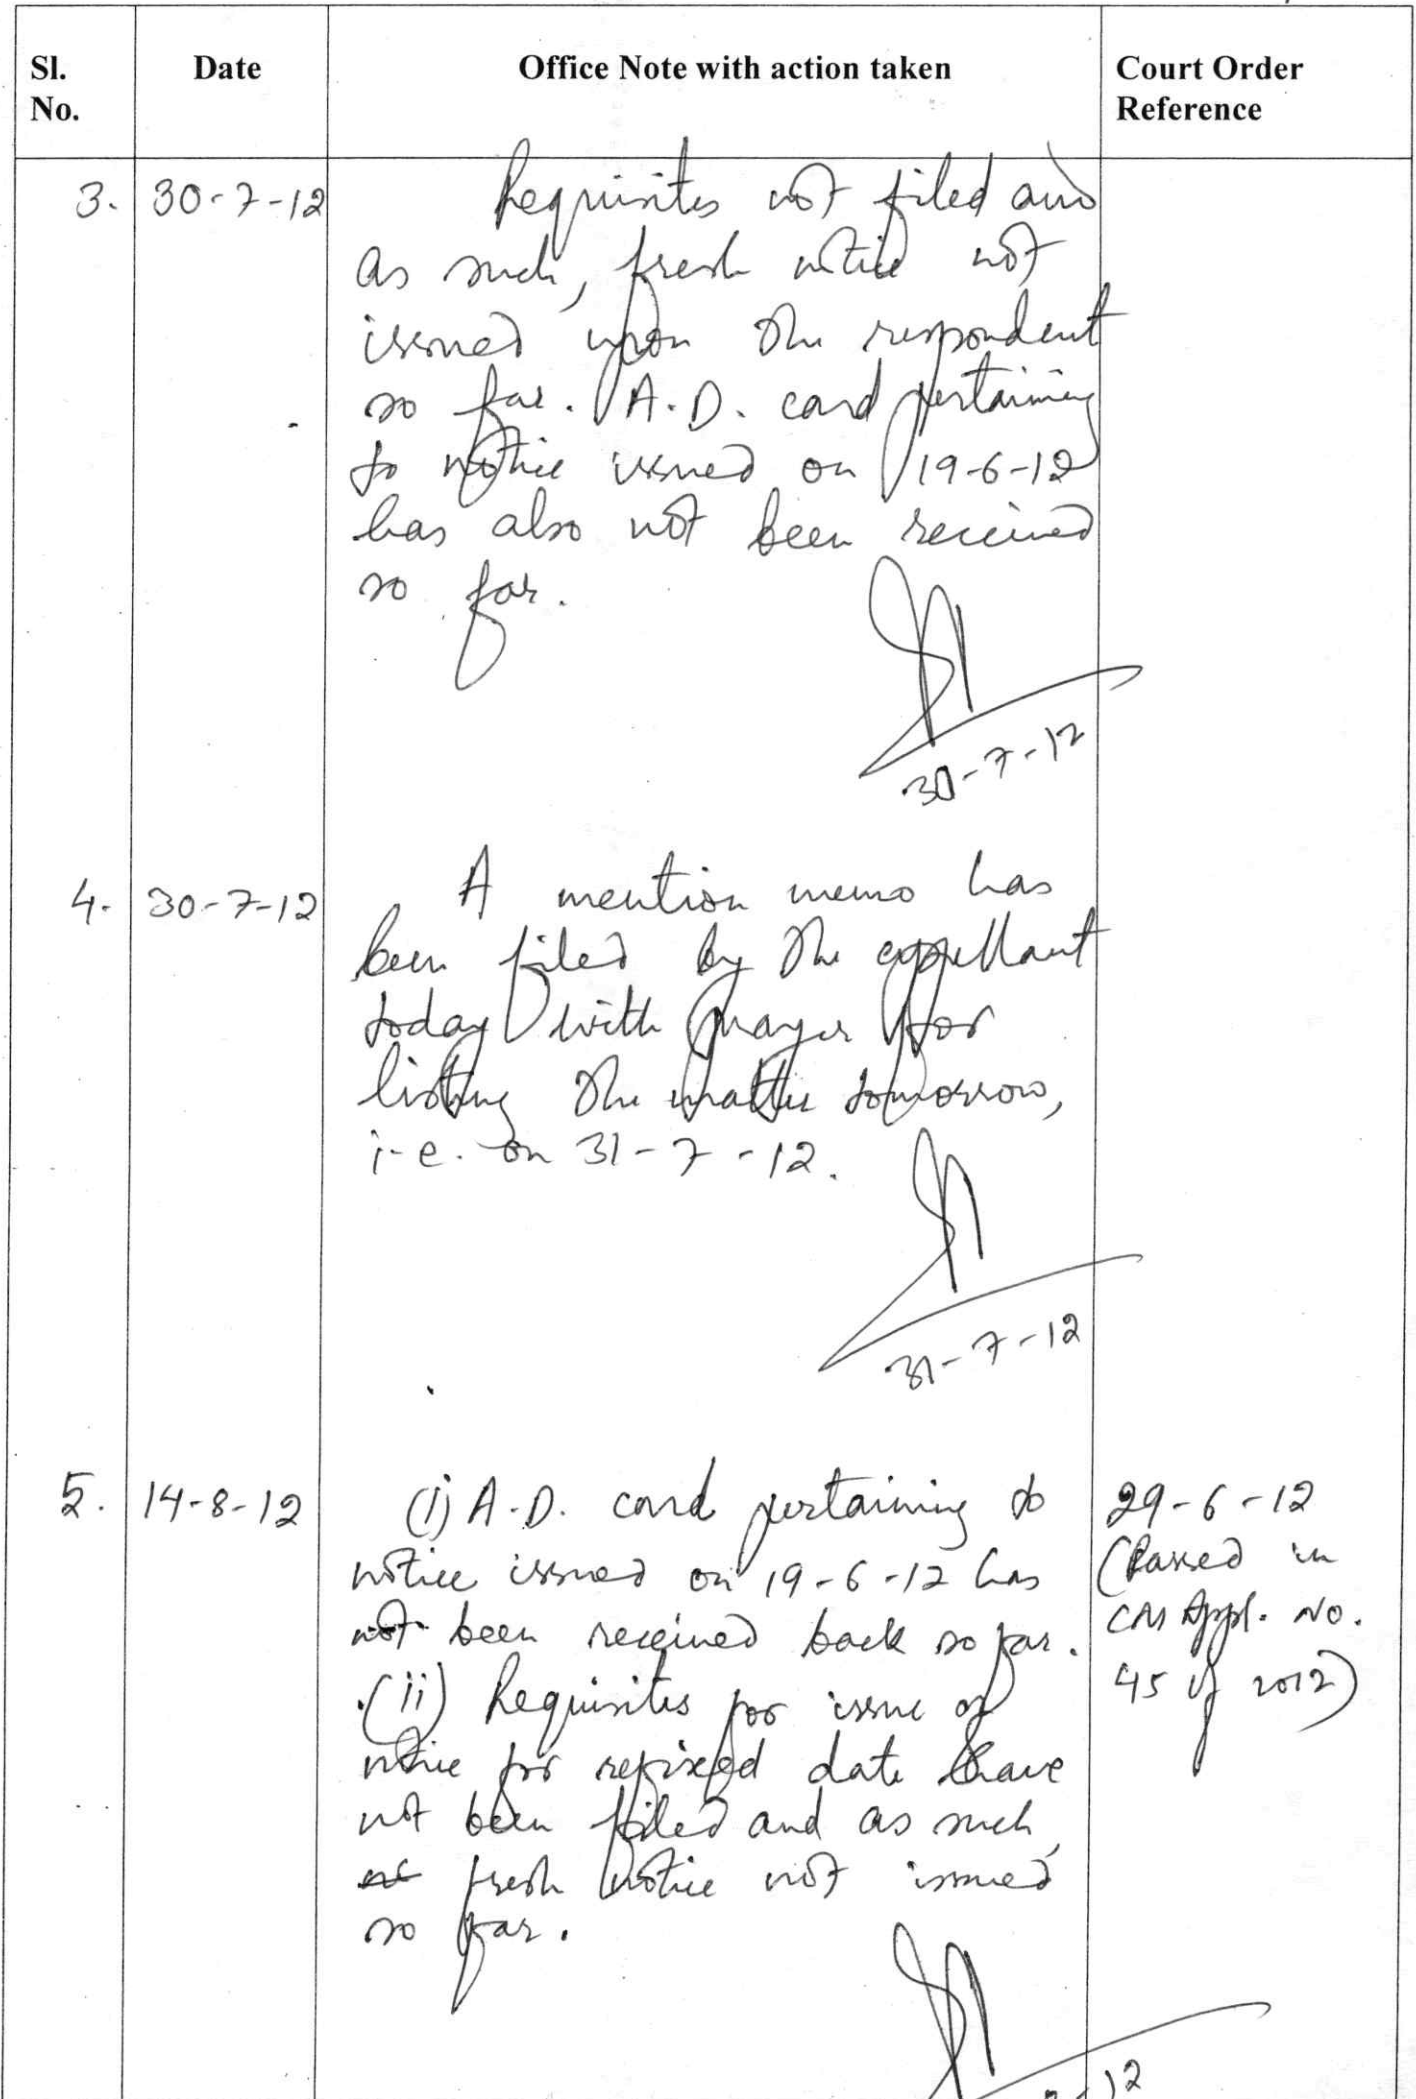 Sl. No. Date Office Note with action taken Court Order Reference
3. 30-7-12 Requisites not filed and
as such, fresh notice not
issued upon the respondent
so far. A.D. card pertaining
to notice issued on 19-6-12
has also not been received
so far.
30-7-12
4. 30-7-12 A mention memo has
been filed by the appellant
today with prayer for
listing the matter tomorrow,
i.e. on 31-7-12.
31-7-12
5. 14-8-12 (i) A.D. card pertaining to 29-6-12
notice issued on 19-6-12 has (Passed in
not been received back so far. CM Appl. No.
(ii) Requisites for issue of 45 of 2012)
notice for refixed date have
not been filed and as such,
fresh notice not issued
so far.